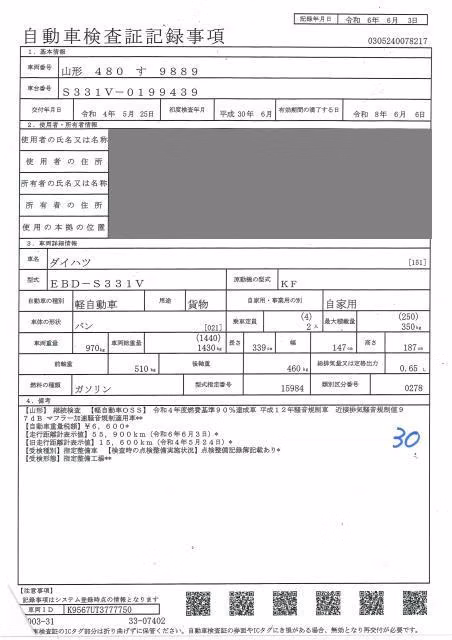 記録年月日 令和 6年 6月 3日
自動車検査証記録事項
0305240078217
1. 基本情報
車両番号 山形 480 す 9889
車台番号 S331V-0199439
交付年月日 令和 4年 5月 25日 初度検査年月 平成 30年 6月 有効期間の満了する日 令和 8年 6月 6日
2. 使用者・所有者情報
使用者の氏名又は名称
使用者の住所
所有者の氏名又は名称
所有者の住所
使用の本拠の位置
3. 車両詳細情報
車名 ダイハツ [151]
型式 EBD-S331V 原動機の型式 KF
自動車の種別 軽自動車 用途 貨物 自家用・事業用の別 自家用
車体の形状 バン [021] 乗車定員 (4) 2人 最大積載量 (250) 350kg
車両重量 970kg 車両総重量 (1440) 1430kg 長さ 339cm 幅 147cm 高さ 187cm
前軸重 510kg 後軸重 460kg 総排気量又は定格出力 0.65 L
燃料の種類 ガソリン 型式指定番号 15984 類別区分番号 0278
4. 備考
[山形] 継続検査 【軽自動車OSS】 令和4年度燃費基準90%達成車 平成12年騒音規制車 近接排気騒音規制値9
7dB マフラー加速騒音規制適用車**
【自動車重量税額】¥6,600*
【走行距離計表示値】55,900km(令和6年6月3日)*
【旧走行距離計表示値】15,600km(令和4年5月24日)*
【受検種別】指定整備車 【検査時の点検整備実施状況】点検整備記録簿記載あり*
【受検形態】指定整備工場**
30
【注意事項】
記録事項はシステム登録時点の情報となります
車両ID K9567UT3777750
003-31 33-07402
車検査証のICタグ部分は折り曲げずに保管ください。自動車検査証の券面やICタグにき損がある場合、無効となり再交付が必要です。